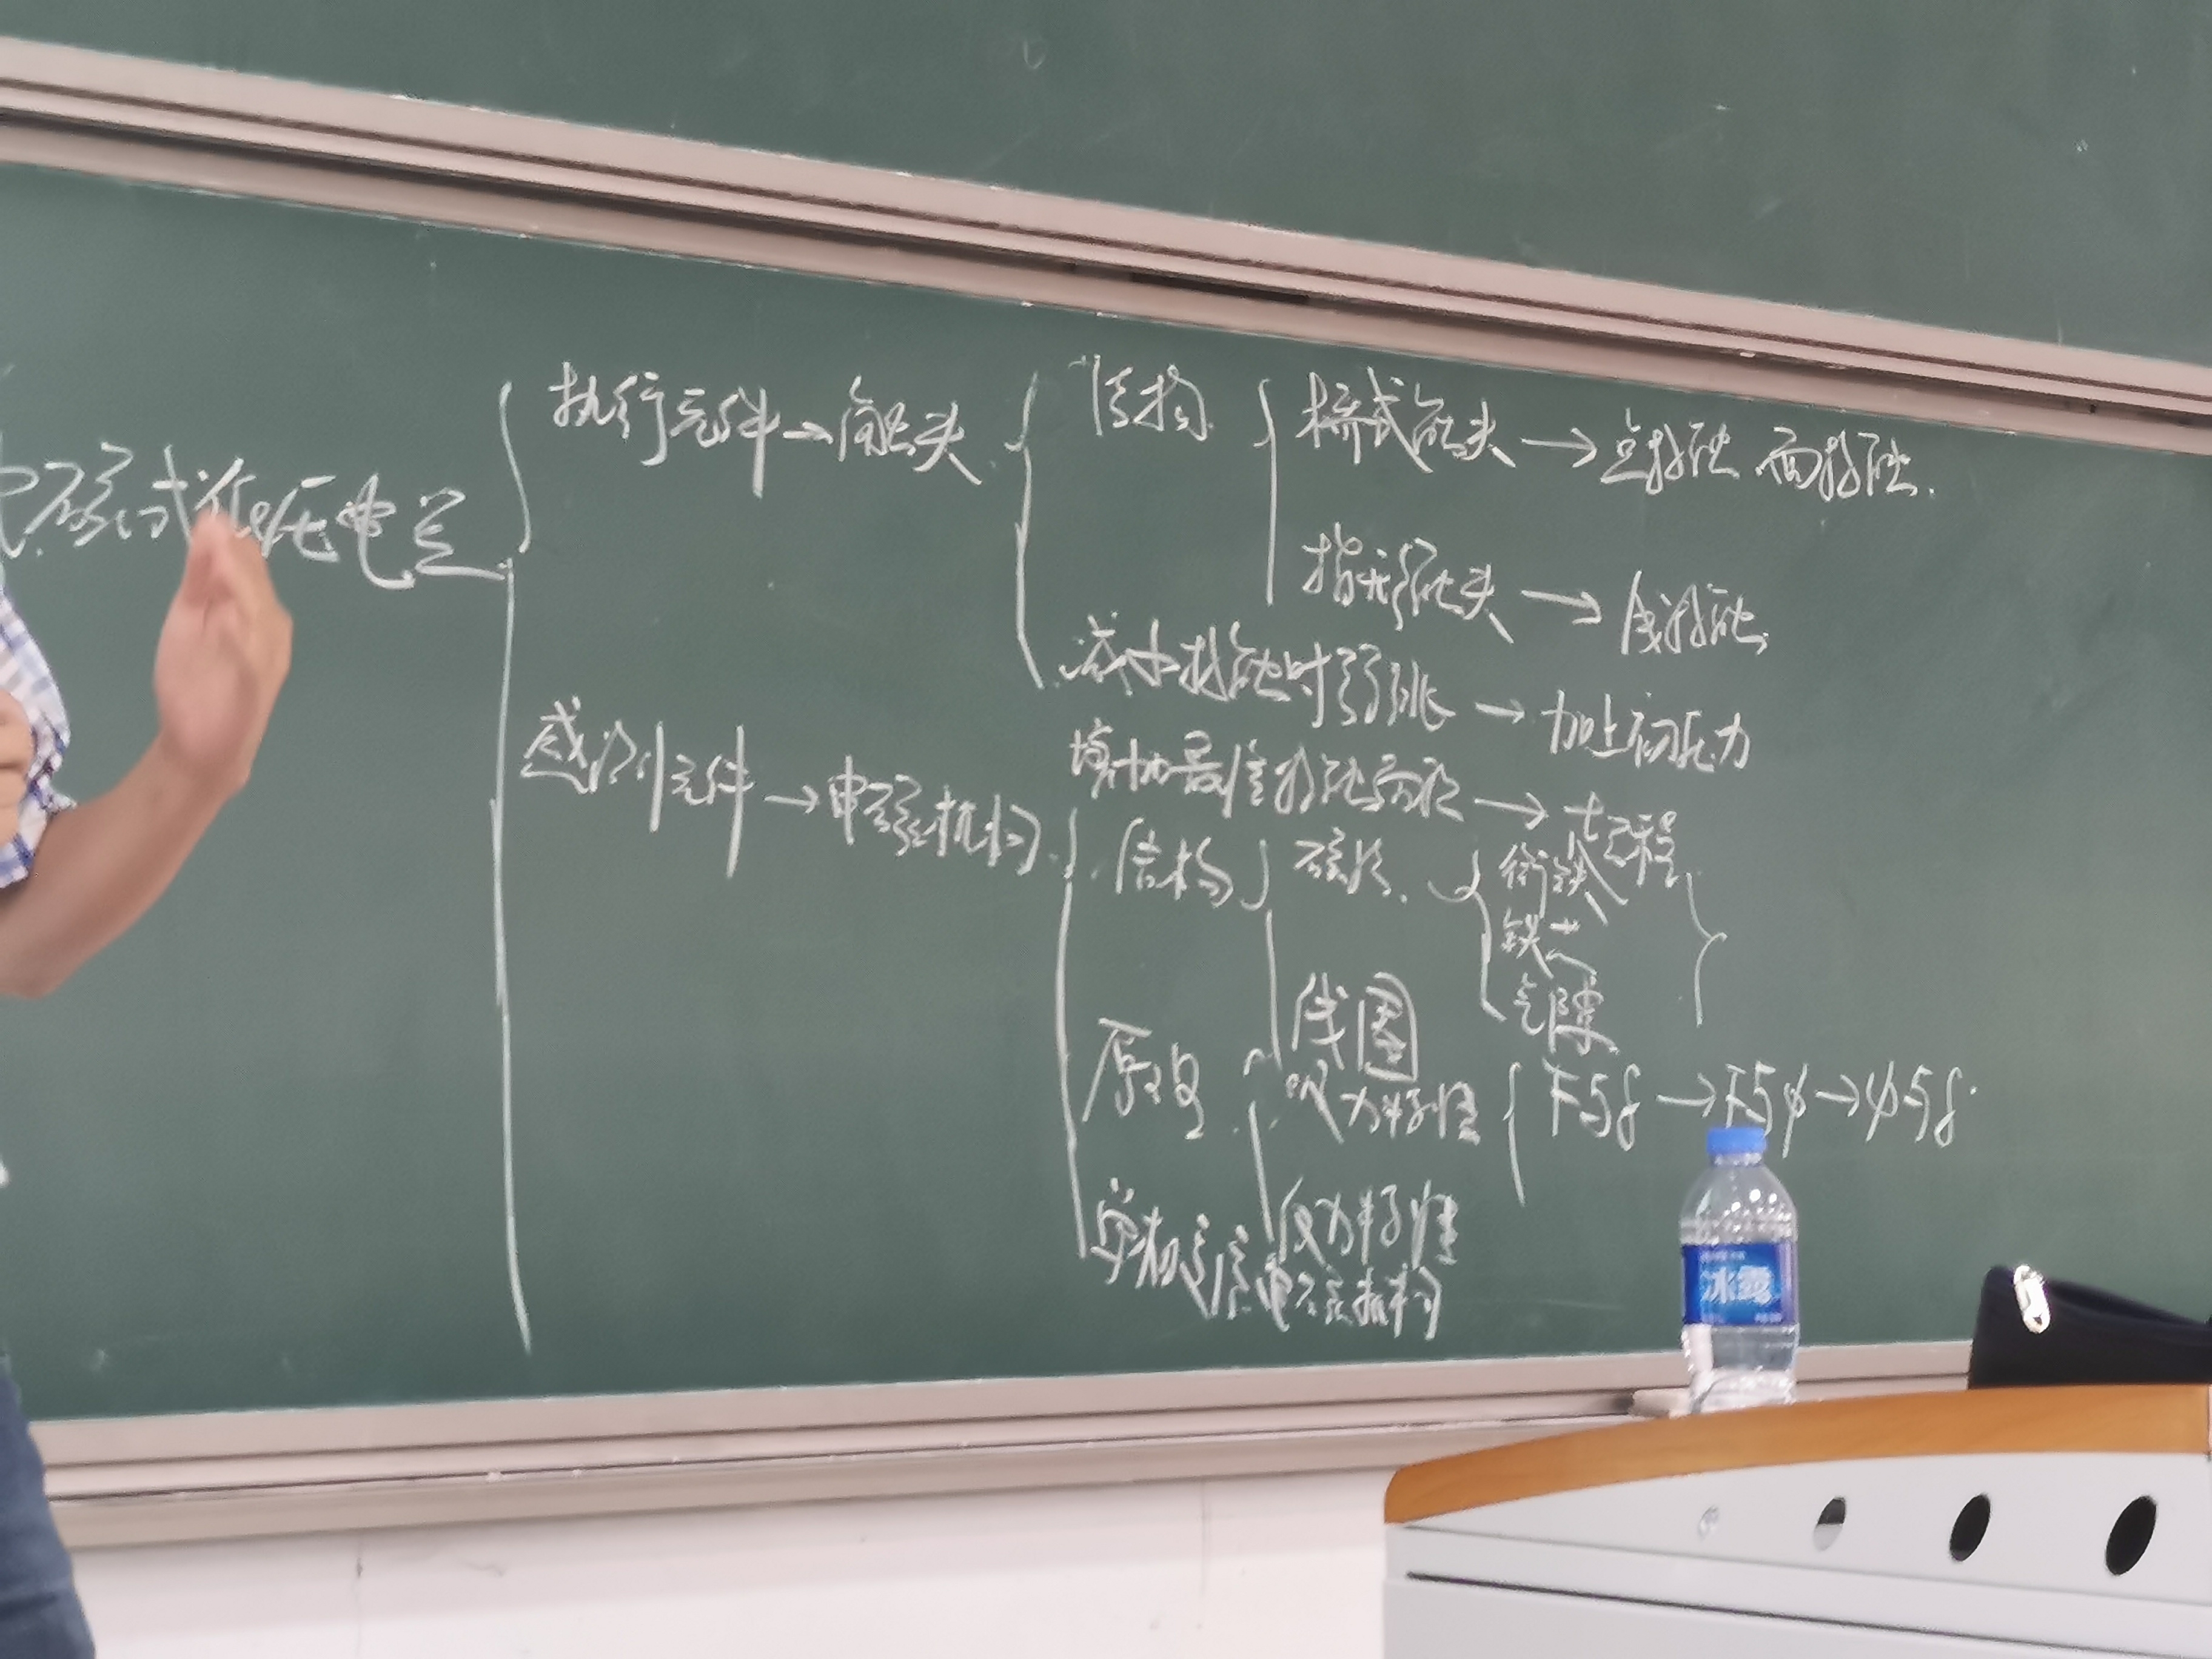 电磁式低压电器
执行元件→触头
结构
桥式触头→点接触 面接触.
指形触头→线接触
减小接触时弹跳→加上初压力
增加最终接触面积→超程
感测元件→电磁机构
结构
磁路.
衔铁
铁芯
气隙
线圈
原理
吸力特性
F与δ→F与φ→φ与δ.
反力特性
单相交流电磁机构
冰露